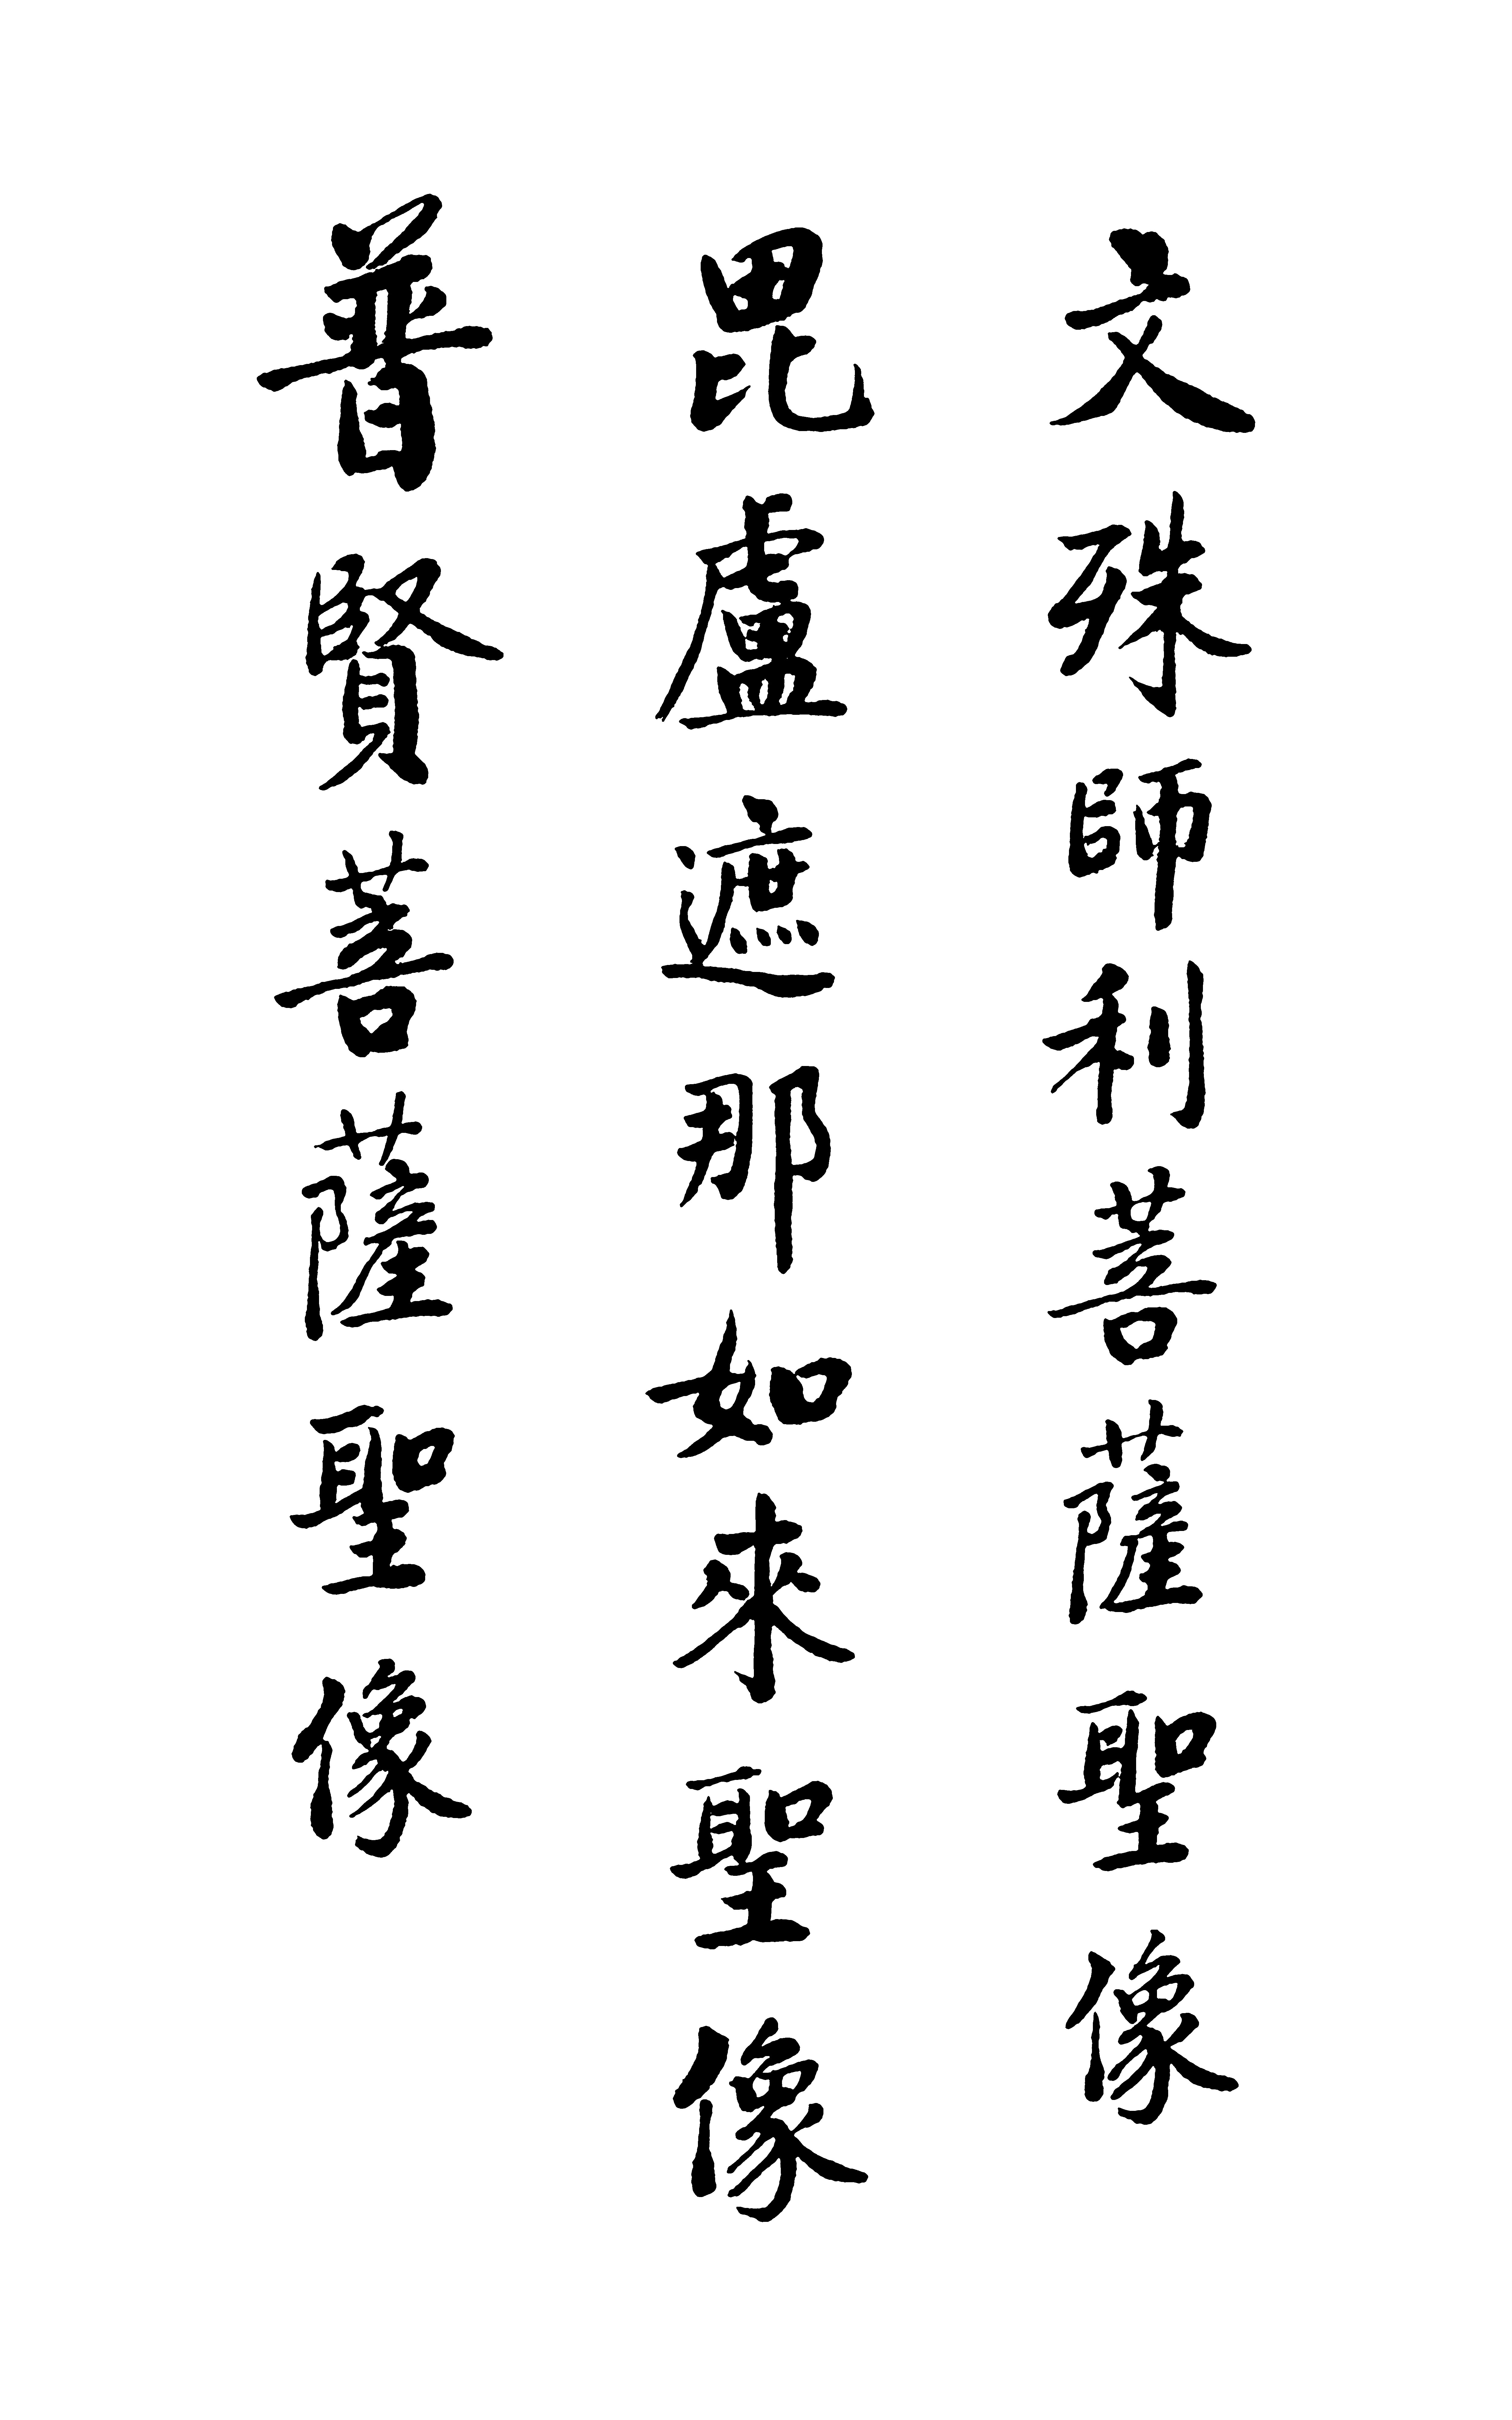 文殊師利菩薩聖像
毘盧遮那如來聖像
普賢菩薩聖像